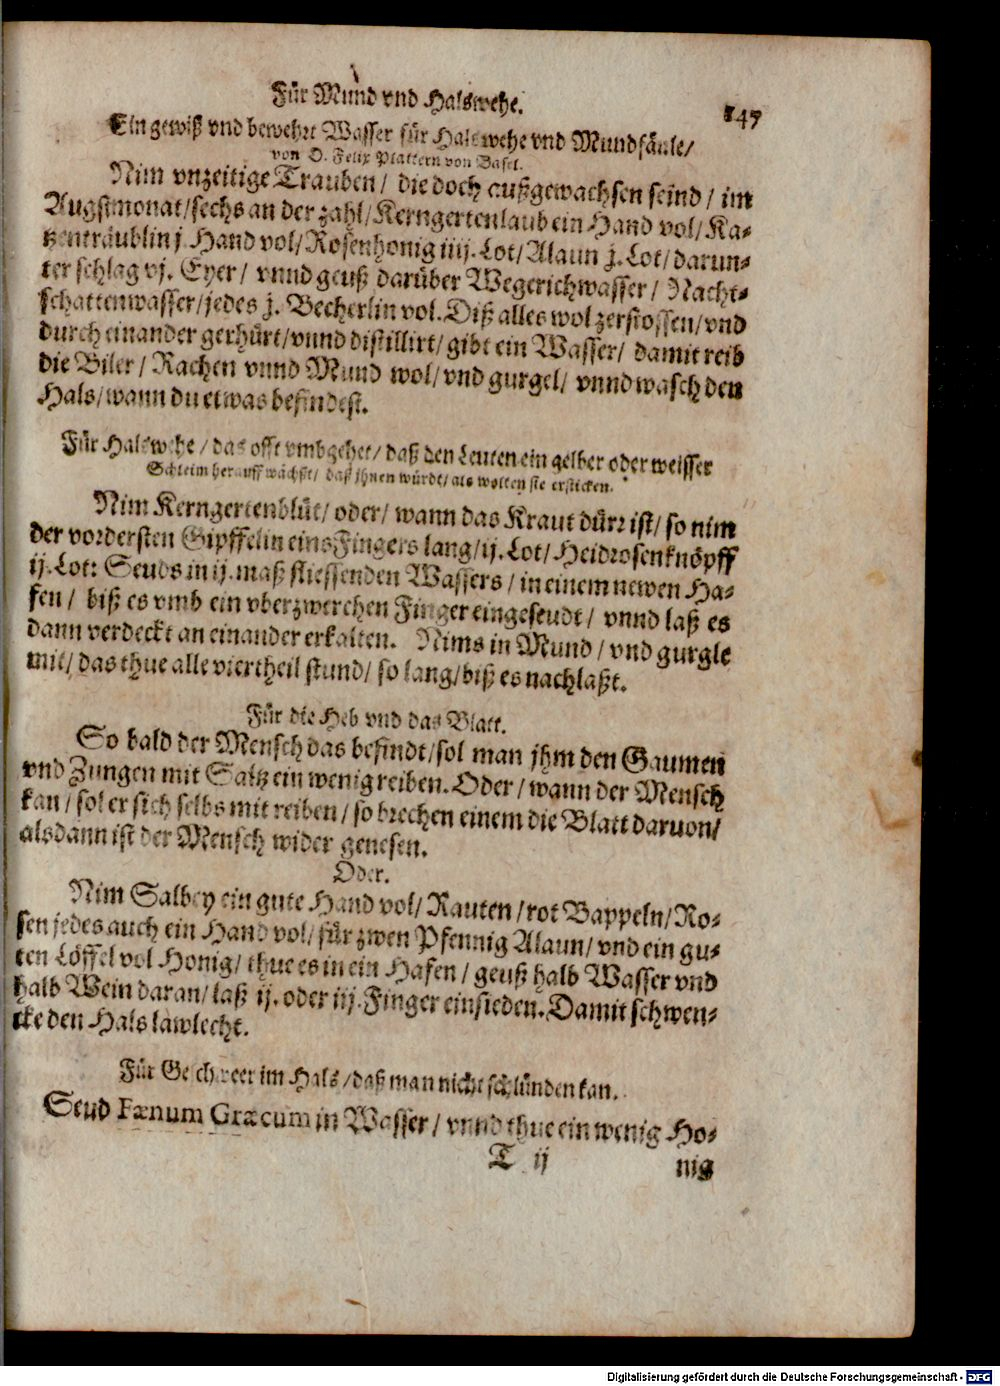 Für Mund vnd Halswehe.
147
Ein gewiß vnd bewehrt Wasser für Halswehe vnd Mundfäule/
von D. Felix Plattern von Basel.
Nim vnzeitige Trauben/ die doch außgewachsen seind/ im
Augstmonat/ sechs an der zahl/ Kerngertenlaub ein Hand vol/ Ka-
tzenträublin j. Hand vol/ Rosenhonig iiij. Lot/ Alaun j. Lot/ darun-
ter schlag vj. Eyer/ vnnd geuß darüber Wegerichwasser/ Nacht-
schattenwasser/ jedes j. Becherlin vol. Diß alles wol zerstossen/ vnd
durch einander gerhürt/ vnnd distillirt/ gibt ein Wasser/ damit reib
die Biler/ Rachen vnnd Mund wol/ vnd gurgel/ vnnd wasch den
Hals/ wann du etwas befindest.
Für Halswehe/ das offt vmbgehet/ daß den Leuten ein gelber oder weisser
Schleim herauff wächßt/ daß ihnen würdt/ als wolten sie ersticken.
Nim Kerngertenblüt/ oder/ wann das Kraut dürr ist/ so nim
der vordersten Gipffelin eins Fingers lang/ ij. Lot/ Heidrosenknöpff
ij. Lot: Seuds in ij. maß fliessenden Wassers/ in einem newen Ha-
fen/ biß es vmb ein vberzwerchen Finger eingeseudt/ vnnd laß es
dann verdeckt an einander erkalten. Nims in Mund/ vnd gurgle
mit/ das thue alle viertheil stund/ so lang/ biß es nachlaßt.
Für die Heb vnd das Blatt.
So bald der Mensch das befindt/ sol man jhm den Gaumen
vnd Zungen mit Saltz ein wenig reiben. Oder/ wann der Mensch
kan/ sol er sich selbs mit reiben/ so brechen einem die Blatt daruon/
alsdann ist der Mensch wider genesen.
Oder.
Nim Salbey ein gute Hand vol/ Rauten/ rot Bappeln/ Ro-
sen jedes auch ein Hand vol/ für zwen Pfennig Alaun/ vnd ein gu-
ten Löffel vol Honig/ thue es in ein Hafen/ geuß halb Wasser vnd
halb Wein daran/ laß ij. oder iij. Finger einsieden. Damit schwen-
cke den Hals lawlecht.
Für Geschweer im Hals/ daß man nicht schlünden kan.
Seud Fœnum Græcum in Wasser/ vnnd thue ein wenig Ho-
T ij
nig
Digitalisierung gefördert durch die Deutsche Forschungsgemeinschaft - DFG